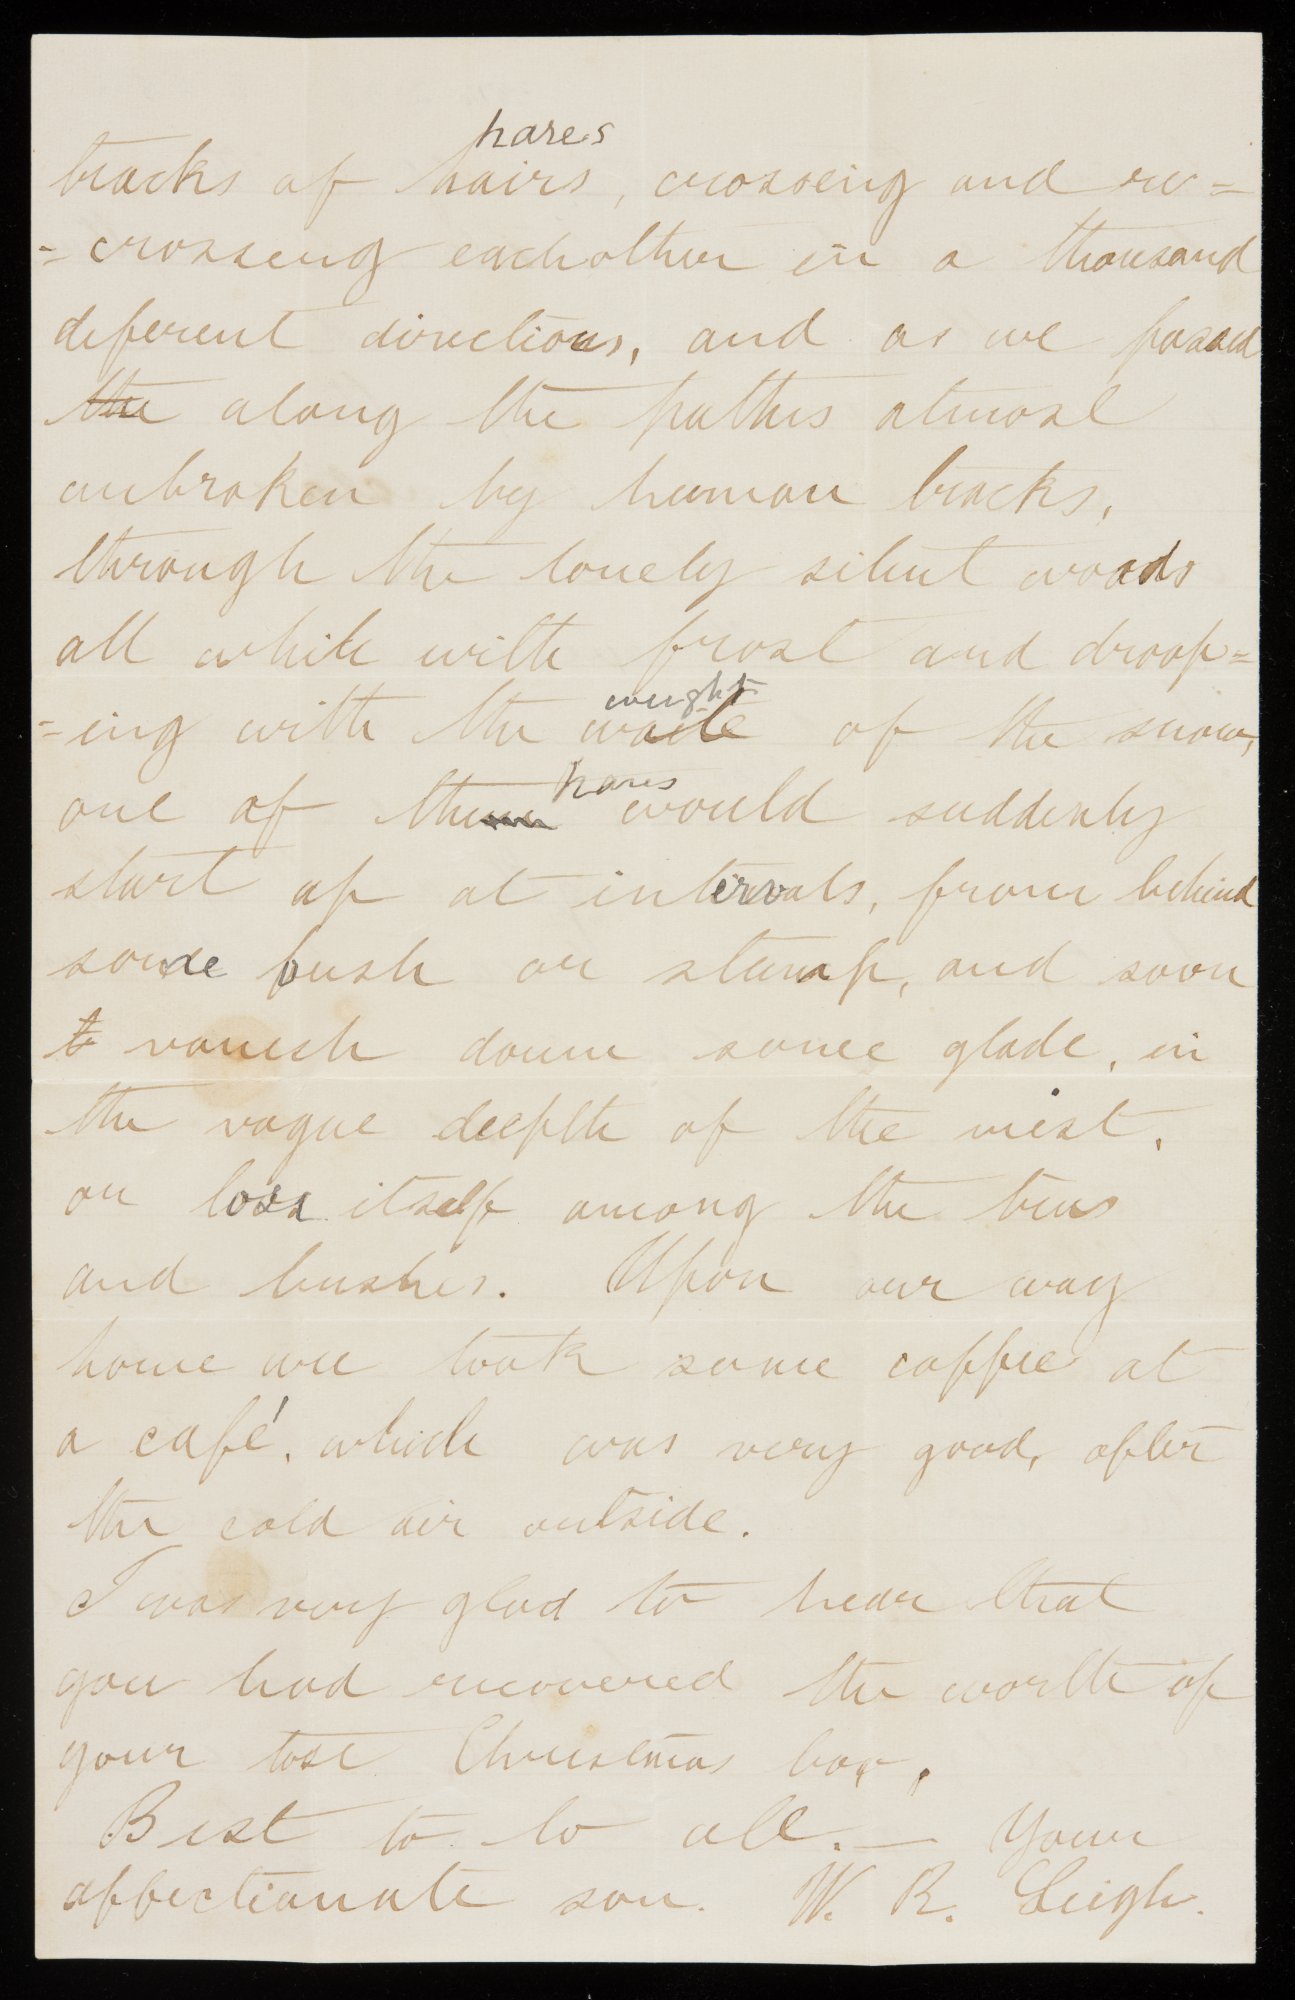 hares
tracks of hairs, crossing and re=
=crossing eachother in a thousand
diferent directions, and as we passed
the along the paths almost
unbroken by human tracks,
through the lonely silent woods
all white with frost and droop=
weight
=ing with the waite of the snow,
hares
one of them would suddenly
start up at intervals, from behind
some bush or stump, and soon
to vanish down some glade, in
the vague deepth of the mist,
or loss itself among the trees
and bushes. Upon our way
home we took some coffee at
a café, which was very good, after
the cold air outside.
I was very glad to hear that
you had recovered the worth of
your lost Christmas box.
Best to to all. — Your
affectionate son. W. R. Leigh.